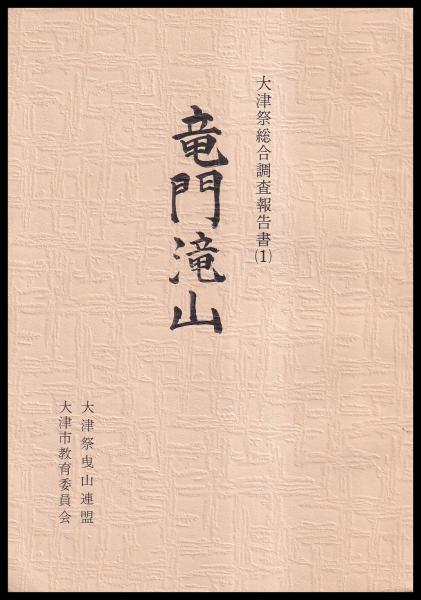 大津祭総合調査報告書(1)
竜門滝山
大津祭曳山連盟
大津市教育委員会